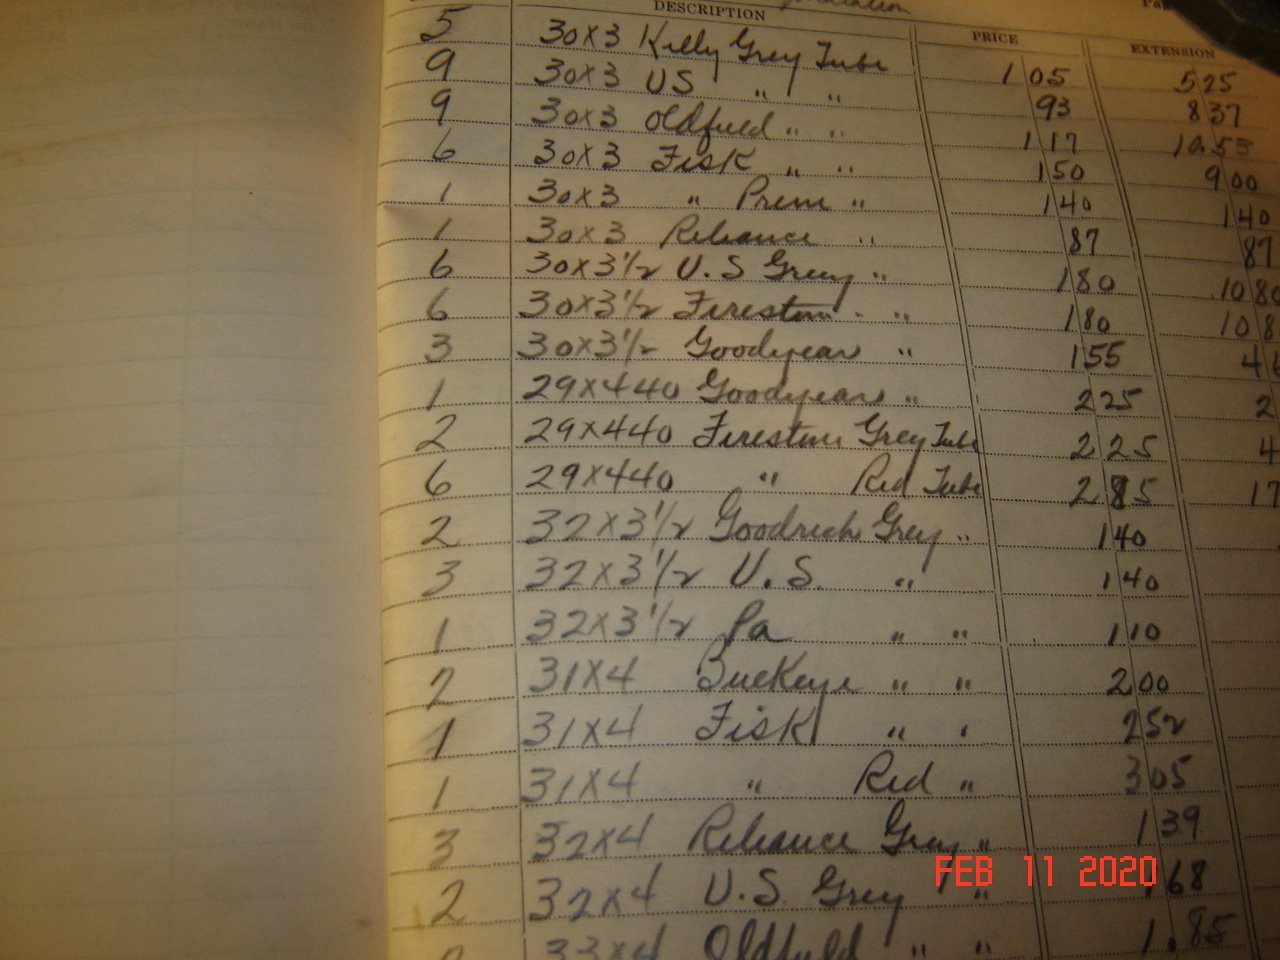 DESCRIPTION PRICE EXTENSION
5 30x3 Kelly Grey Tube 1 05 5 25
9 30x3 US " " 93 8 37
9 30x3 Oldfield " " 1 17 10.53
6 30x3 Fisk " " 1 50 9 00
1 30x3 " Prem " 1 40 1 40
1 30x3 Reliance " 87 87
6 30x3 1/2 U.S Grey " 1 80 10 80
6 30x3 1/2 Firestone " " 1 80 10 8
3 30x3 1/2 Goodyear " 1 55 4 6
1 29x440 Goodyear " 2 25 2
2 29x440 Firestone Grey Tube 2 25 4
6 29x440 " Red Tube 2 85 17
2 32x3 1/2 Goodrich Grey " 1 40
3 32x3 1/2 U.S. " 1 40
1 32x3 1/2 Pa " " 1 10
2 31x4 Buckeye " " 2 00
1 31x4 Fisk " " 2 52
1 31x4 " Red " 3 05
3 32x4 Reliance Grey " 1 39
2 32x4 U.S. Grey " 1 68
33x4 Oldfield " " 1.85
FEB 11 2020